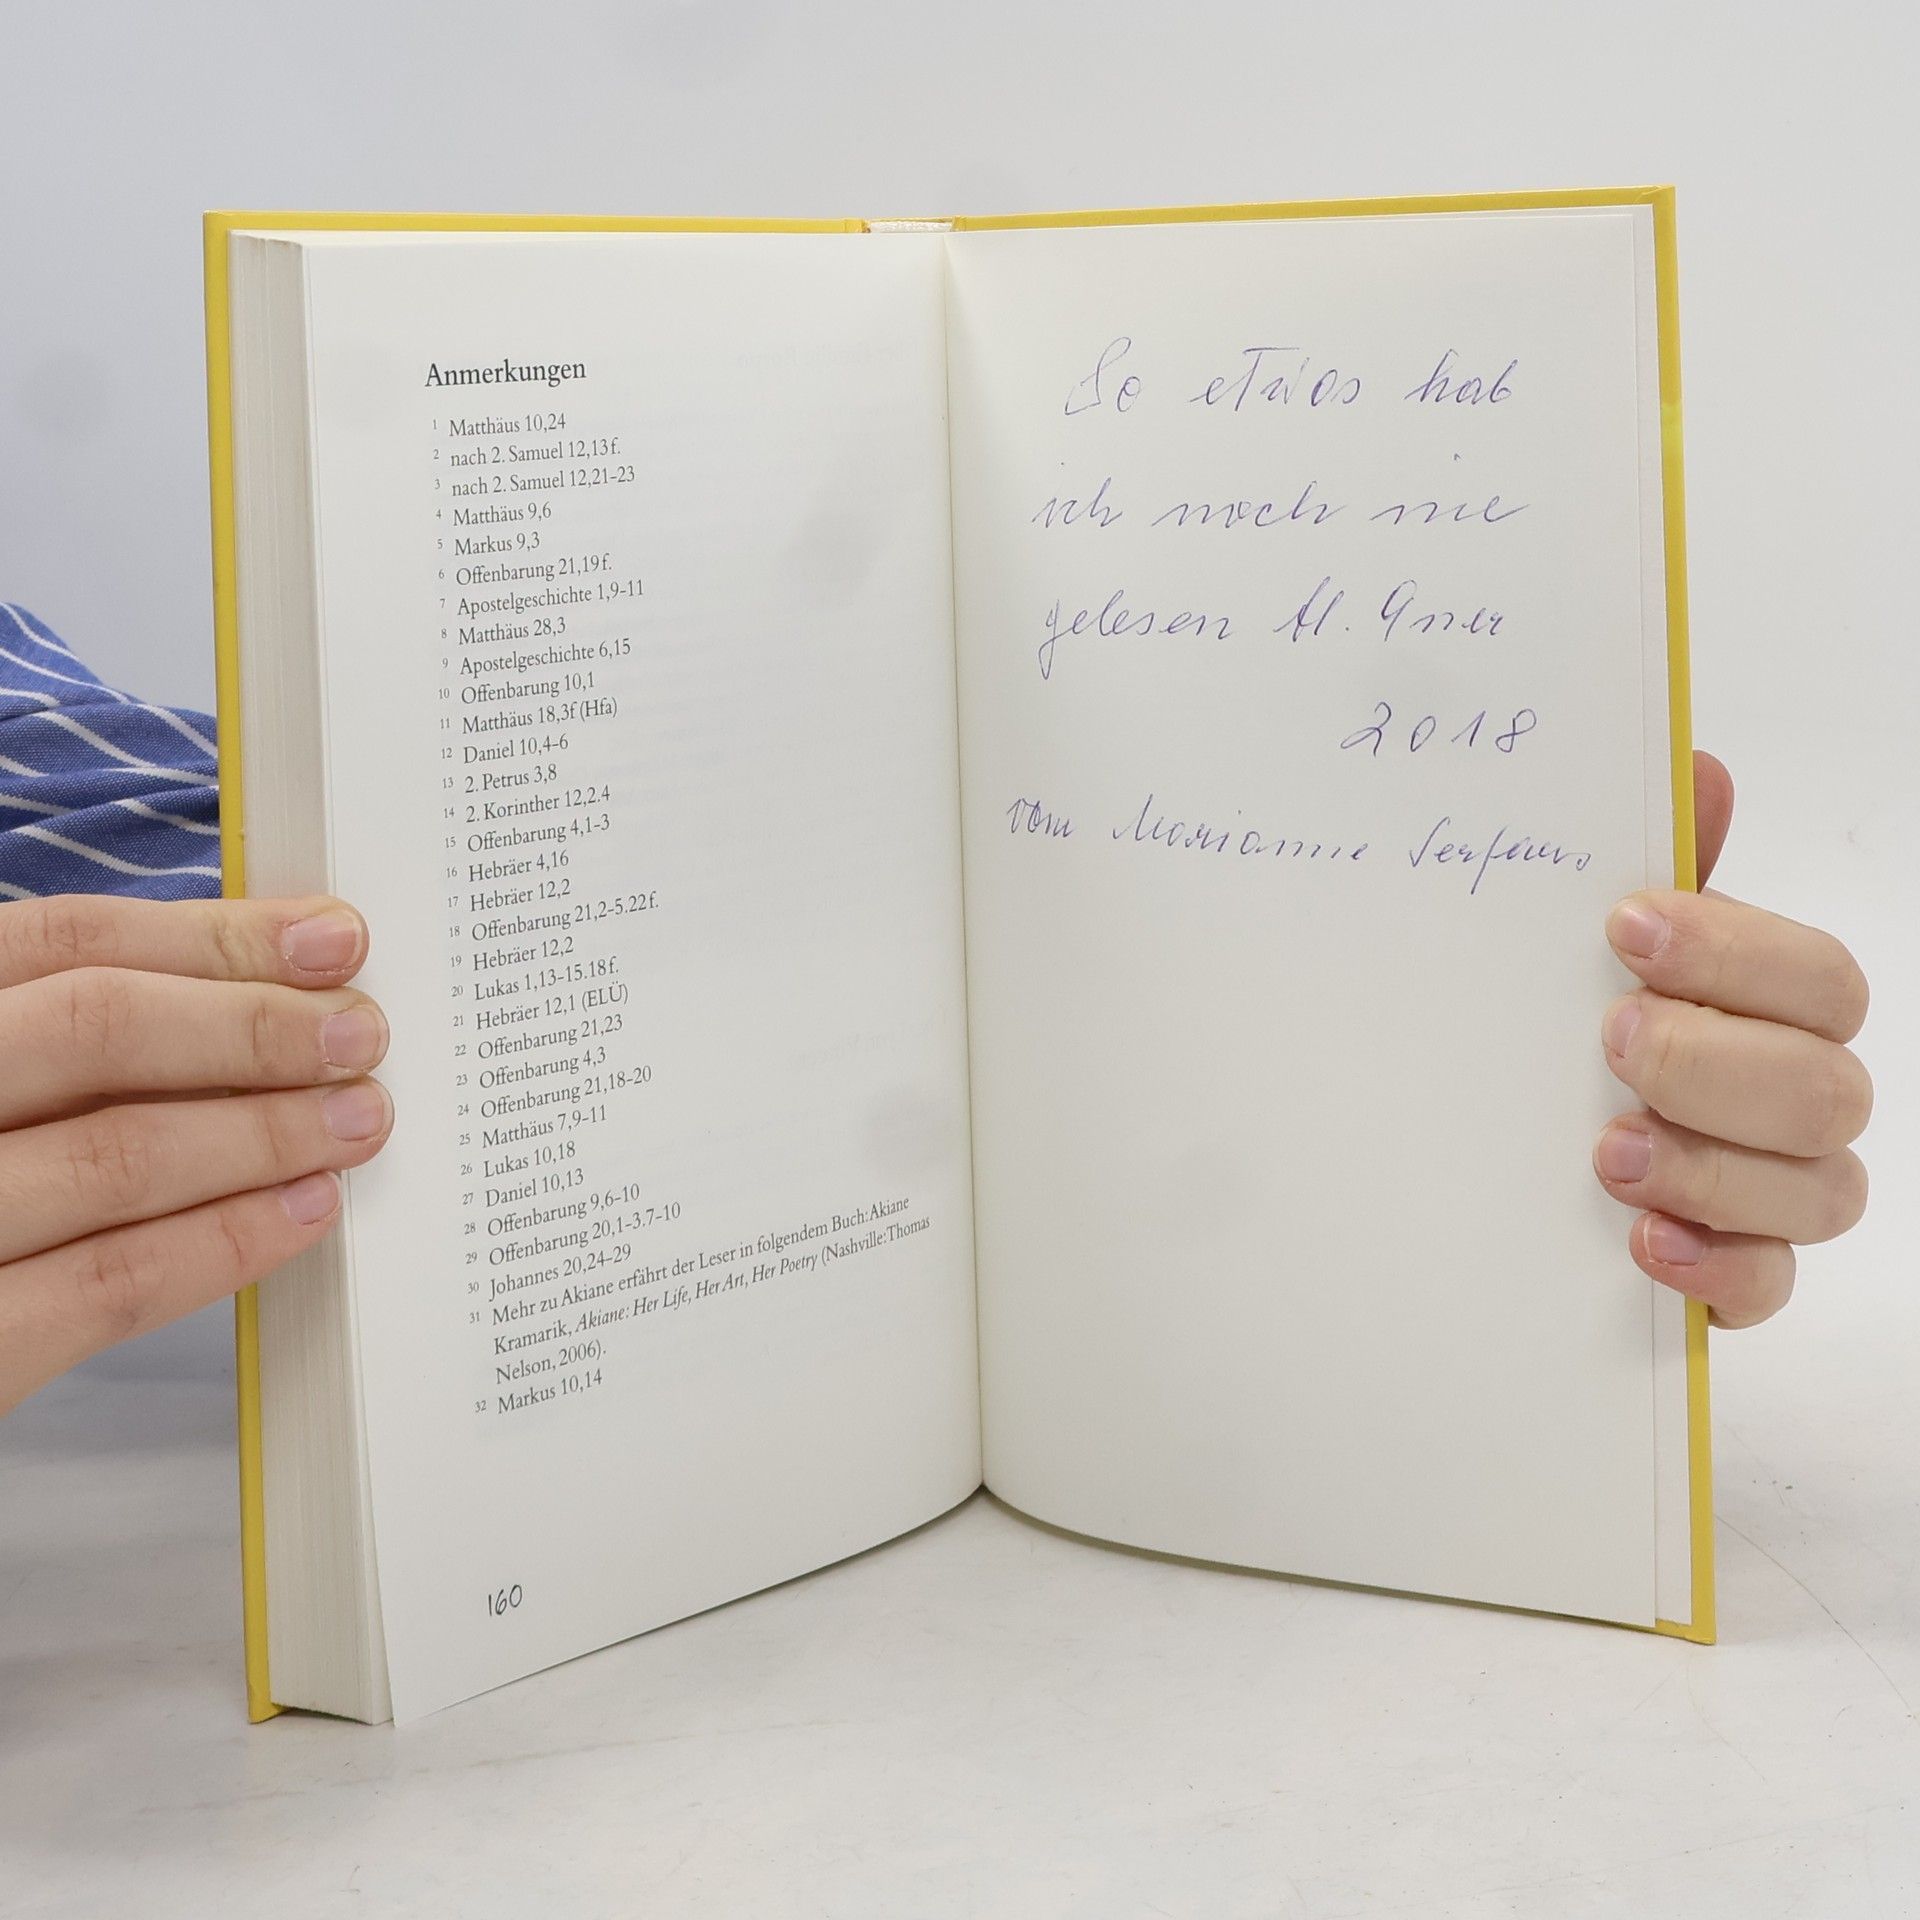 Anmerkungen
1 Matthäus 10,24
2 nach 2. Samuel 12,13 f.
3 nach 2. Samuel 12,21–23
4 Matthäus 9,6
5 Markus 9,3
6 Offenbarung 21,19 f.
7 Apostelgeschichte 1,9–11
8 Matthäus 28,3
9 Apostelgeschichte 6,15
10 Offenbarung 10,1
11 Matthäus 18,3f (Hfa)
12 Daniel 10,4–6
13 2. Petrus 3,8
14 2. Korinther 12,2.4
15 Offenbarung 4,1–3
16 Hebräer 4,16
17 Hebräer 12,2
18 Offenbarung 21,2–5.22 f.
19 Hebräer 12,2
20 Lukas 1,13–15.18 f.
21 Hebräer 12,1 (ELÜ)
22 Offenbarung 21,23
23 Offenbarung 4,3
24 Offenbarung 21,18–20
25 Matthäus 7,9–11
26 Lukas 10,18
27 Daniel 10,13
28 Offenbarung 9,6–10
29 Offenbarung 20,1–3.7–10
30 Johannes 20,24–29
31 Mehr zu Akiane erfährt der Leser in folgendem Buch: Akiane
Kramarik, Akiane: Her Life, Her Art, Her Poetry (Nashville: Thomas
Nelson, 2006).
32 Markus 10,14
160
So etwas hab
ich noch nie
gelesen
2018
vom Marianne